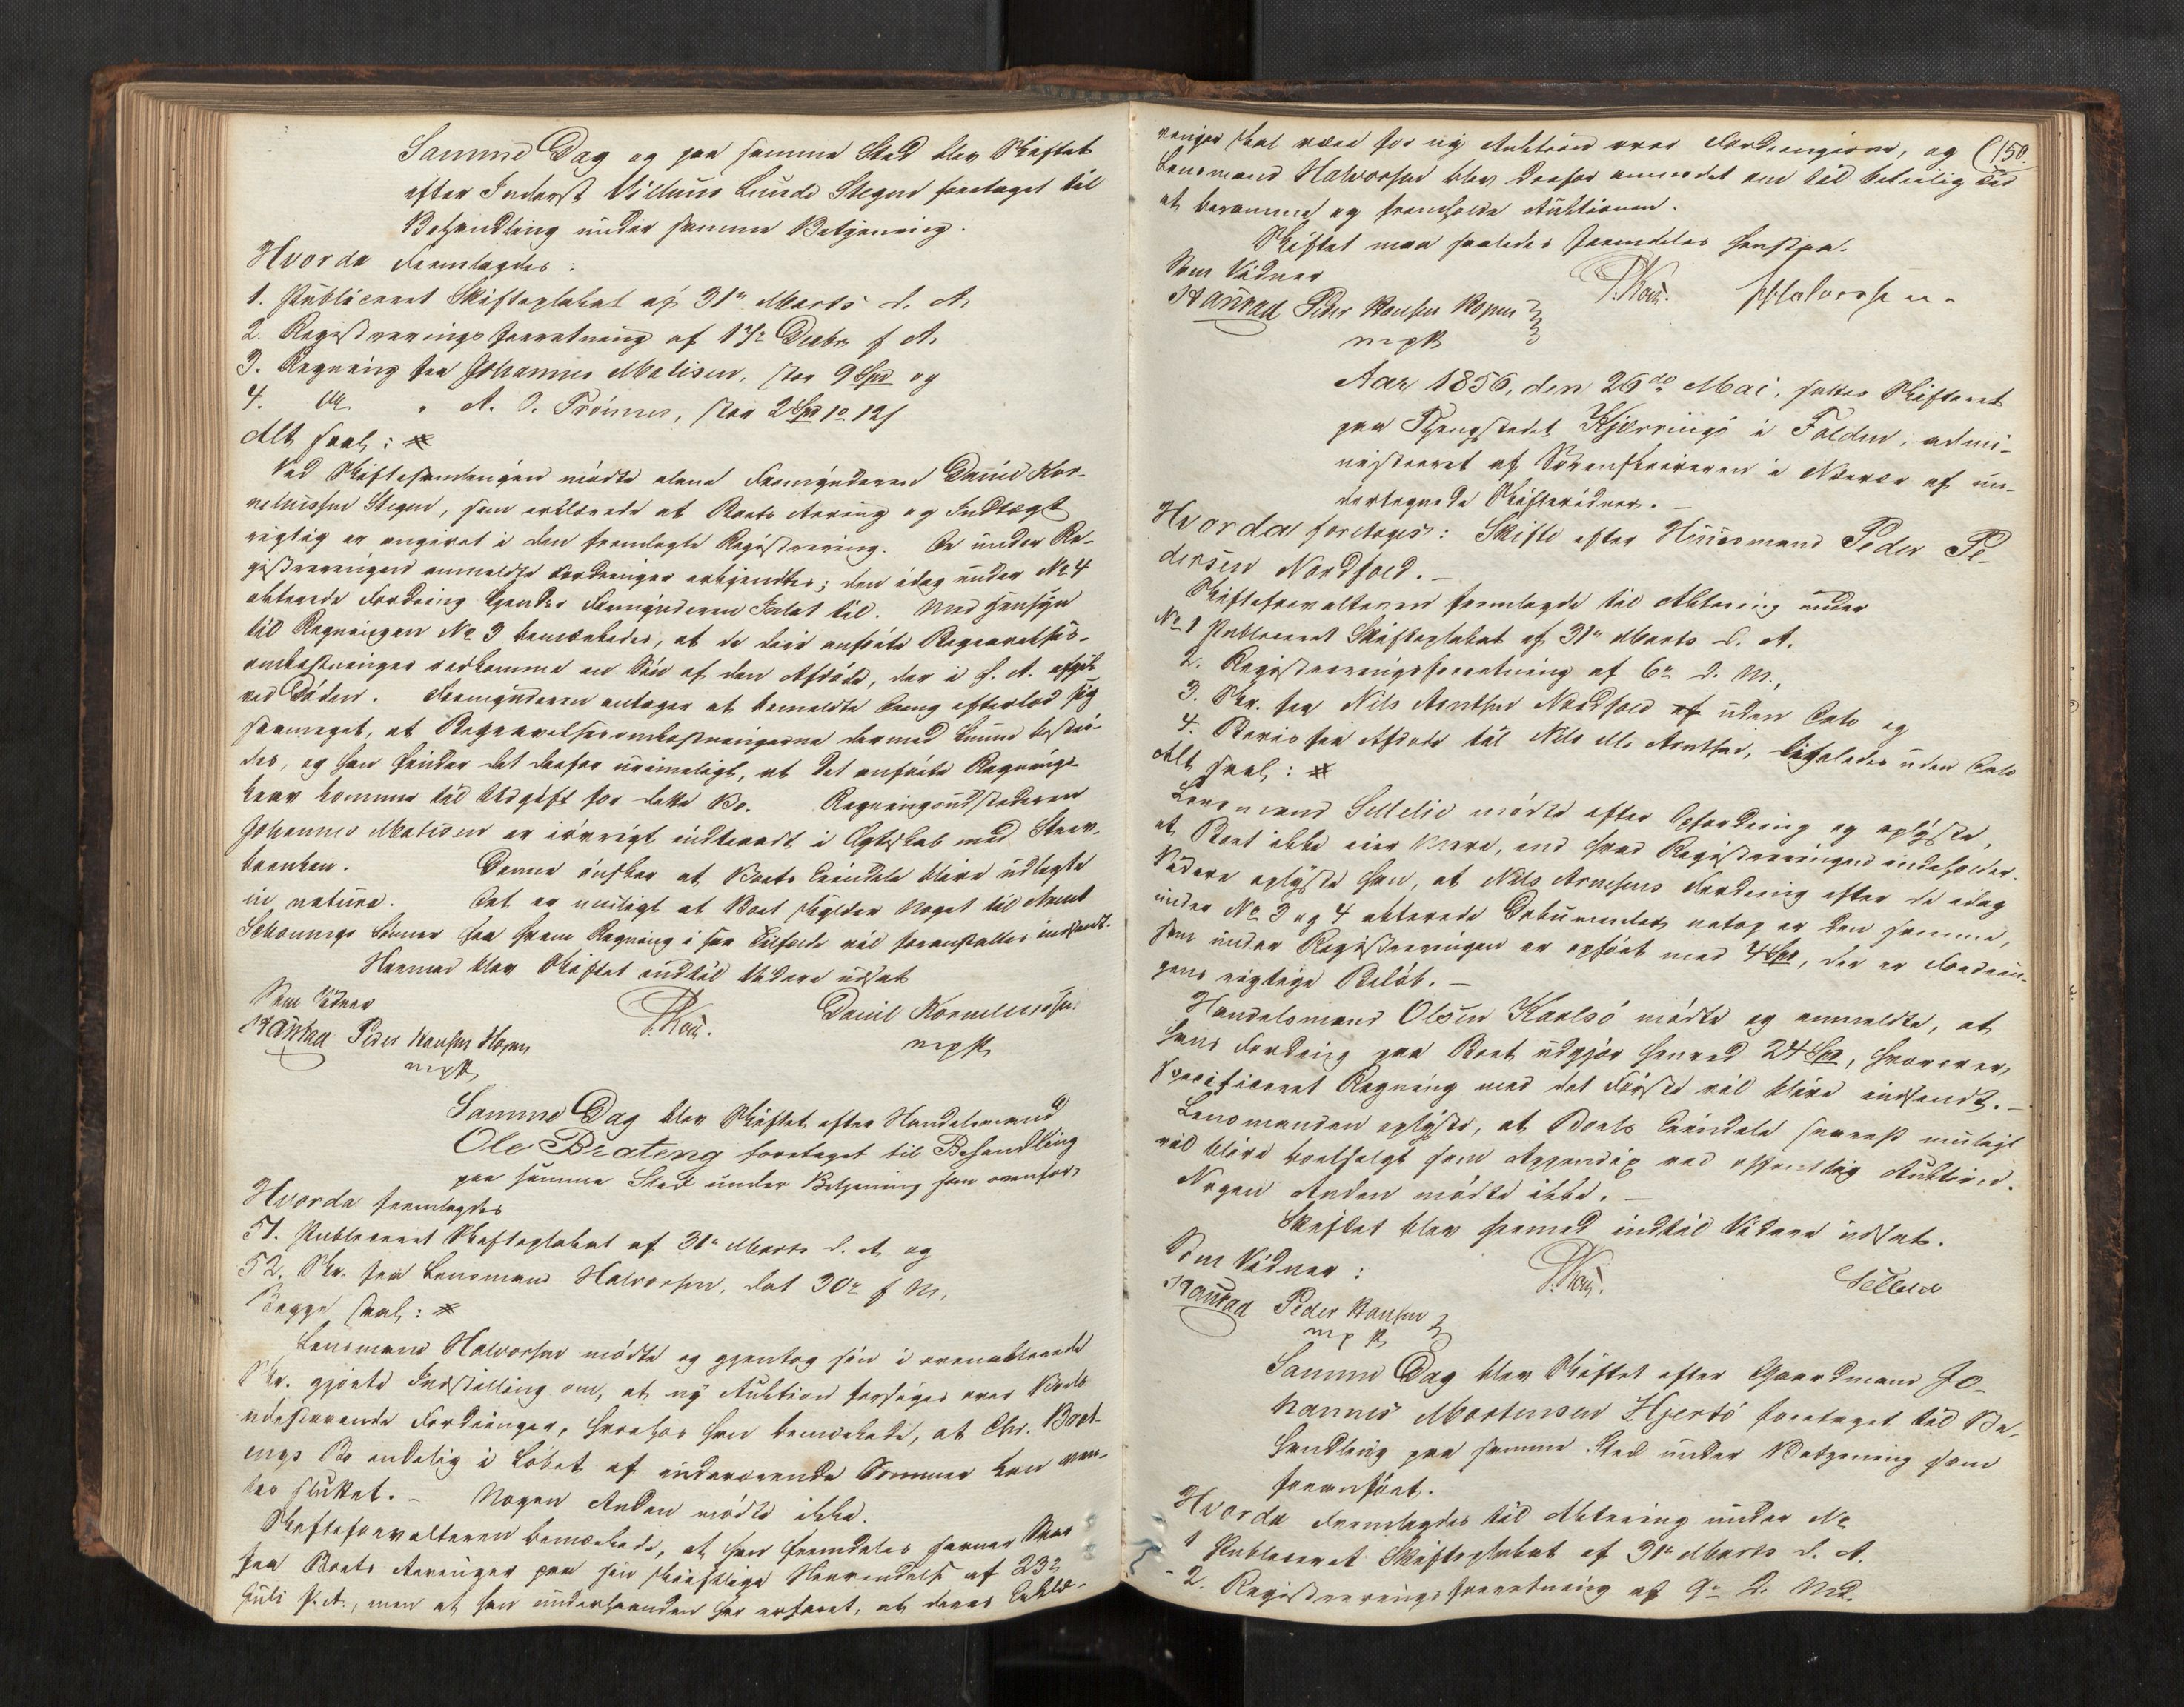 Samme Dag og paa samme Sted blev Skiftet
efter Inderst Villums Lunde Stegen foretaget til
Behandling under samme Betjening.
Hvorda fremlagdes:
1. Publiceret Skifteplakat af 31te Marts d. A.
2. Registreringsforretning af 17de Decbr f. A.
3. Regning fra Johannes Matisen, stor 9 Spd og
4. do " A. O. Prönnes, stor 2 Spd 1 o 12 s
Alt saal: #
Ved Skiftesamlingen mödte alene Formynderen Daniel Kor-
neliussen Stegen, som erklærede at Boets Arving og Indtægt
rigtig er angivet i den fremlagte Registrering. De under Re-
gistreringen anmeldte Fordringer erkjendtes; den idag under No 4
akterede Fordring kjendes Formynderen Intet til. Med Hensyn
til Regningen No 3 bemærkedes, at de deri anförte Begravelses-
omkostninger vedkomme en Sön af den Afdöde, der i f. A. afgik
ved Döden. Formynderen antager at bemeldte Dreng efterlod sig
saameget, at Begravelsesomkostningerne dermed kunne bestri-
des, og han finder det derfor urimeligt, at det anförte Regnings-
krav kommer til Udgift for dette Bo. Regningsudstederen
Johannes Matisen er iövrigt indtraadt i Ægteskab med Stervboenken.
Denne önsker at Boets Eiendele blive udlagte
in natura. Det er muligt at Boet skylder Noget til Arent
Schonings Sönner fra hvem Regning i saa Tilfælde vil foranstaltes indsendt.
Hermed blev Skiftet indtil Videre udsat
Som Vidner
Haurad Peder Hansen Kopnes
mpP
P. Koch.
Daniel Korneliussen
mpP
Samme Dag blev Skiftet efter Handelsmand
Ole Brateng foretaget til Behandling
paa samme Sted under Betjening som ovenfor.
Hvorda fremlagdes
51. Publiceret Skifteplakat af 31te Marts d. A. og
52. Skr. fra Lensmand Halvorsen, dat 30te f. M.
Begge saal: #
Lensmand Halvorsen mödte og gjentog sin i ovenakterede
Skr. gjorte Indstilling om, at ny Auktion forsöges over Boets
udestaaende Fordringer, hvorhos han bemærkede, at Chr. Brat-
engs Bo endelig i Löbet af indeværende Sommer kan ven-
tes sluttet. – Nogen Anden mödte ikke.
Skifteforvalteren bemærkede, at han fremdeles savner Svar
fra Boets Arvinger paa sin skriftlige Henvendelse af 23de
Juli f. A., men at han underhaanden har erfaret, at deres
150.
meninger skal være for ny Auktion over Fordringerne, og
Lensmand Halvorsen blev derfor anmodet om til beleilig Tid
at berammes og fremholde Auktionen.
Skiftet maa saaledes fremdeles henstaa.
Som Vidner
Haurad Peder Hansen Kopnes
mpP
P. Koch. HHalvorsen
Aar 1856, den 26de Mai, sattes Skifteret
paa Thingstedet Kjærringö i Folden, admi-
nistreret af Sorenskriveren i Nærvær af un-
dertegnede Skiftevidner. –
Hvorda foretoges: Skifte efter Huusmand Peder Pe-
dersen Nordfold. –
Skifteforvalteren fremlagde til Aktering under
No 1 Publiceret Skifteplakat af 31te Marts d. A.
2. Registreringsforretning af 6te d. M.,
3. Skr. fra Nils Arntsen Nordfold af uden Dato og
4. Bevis fra Afdöde til Nils M. Arntsen, ligeledes uden Dato
Alt saal: #
Lensmand Sellelie mödte efter Opfordring og oplyste,
at Boet ikke eier Mere, end hvad Registreringen indeholder.
Videre oplyste han, at Nils Arntsens Fordring efter de idag
under No 3 og 4 akterede Dokumenter netop er den samme,
som under Registreringen er opfört med 4 Spd, der er Fordrin-
gens rigtige Belöb. –
Handelsmand Olsen Karlsö mödte og anmeldte, at
hans Fordring paa Boet udgjör henved 24 Spd, hvorover
specificeret Regning med det Förste vil blive indsendt. –
Lensmanden oplyste, at Boets Eiendele snarest muligt
vil blive bortsolgt som Appendix ved offentlig Auktion.
Nogen Anden mödte ikke. –
Skiftet blev hermed indtil Videre udsat.
Som Vidner:
Haurad Peder Hansen
mpP
P. Koch.
Sellelie
Samme Dag blev Skiftet efter Gaardmand Jo-
hannes Mortensen Hjertö foretaget til Be-
handling paa samme Sted under Betjening som
foranfört.
Hvorda fremlagdes til Aktering under No
1 Publiceret Skifteplakat af 31te Marts d. A.
2. Registreringsforretning af 9de d. Md.